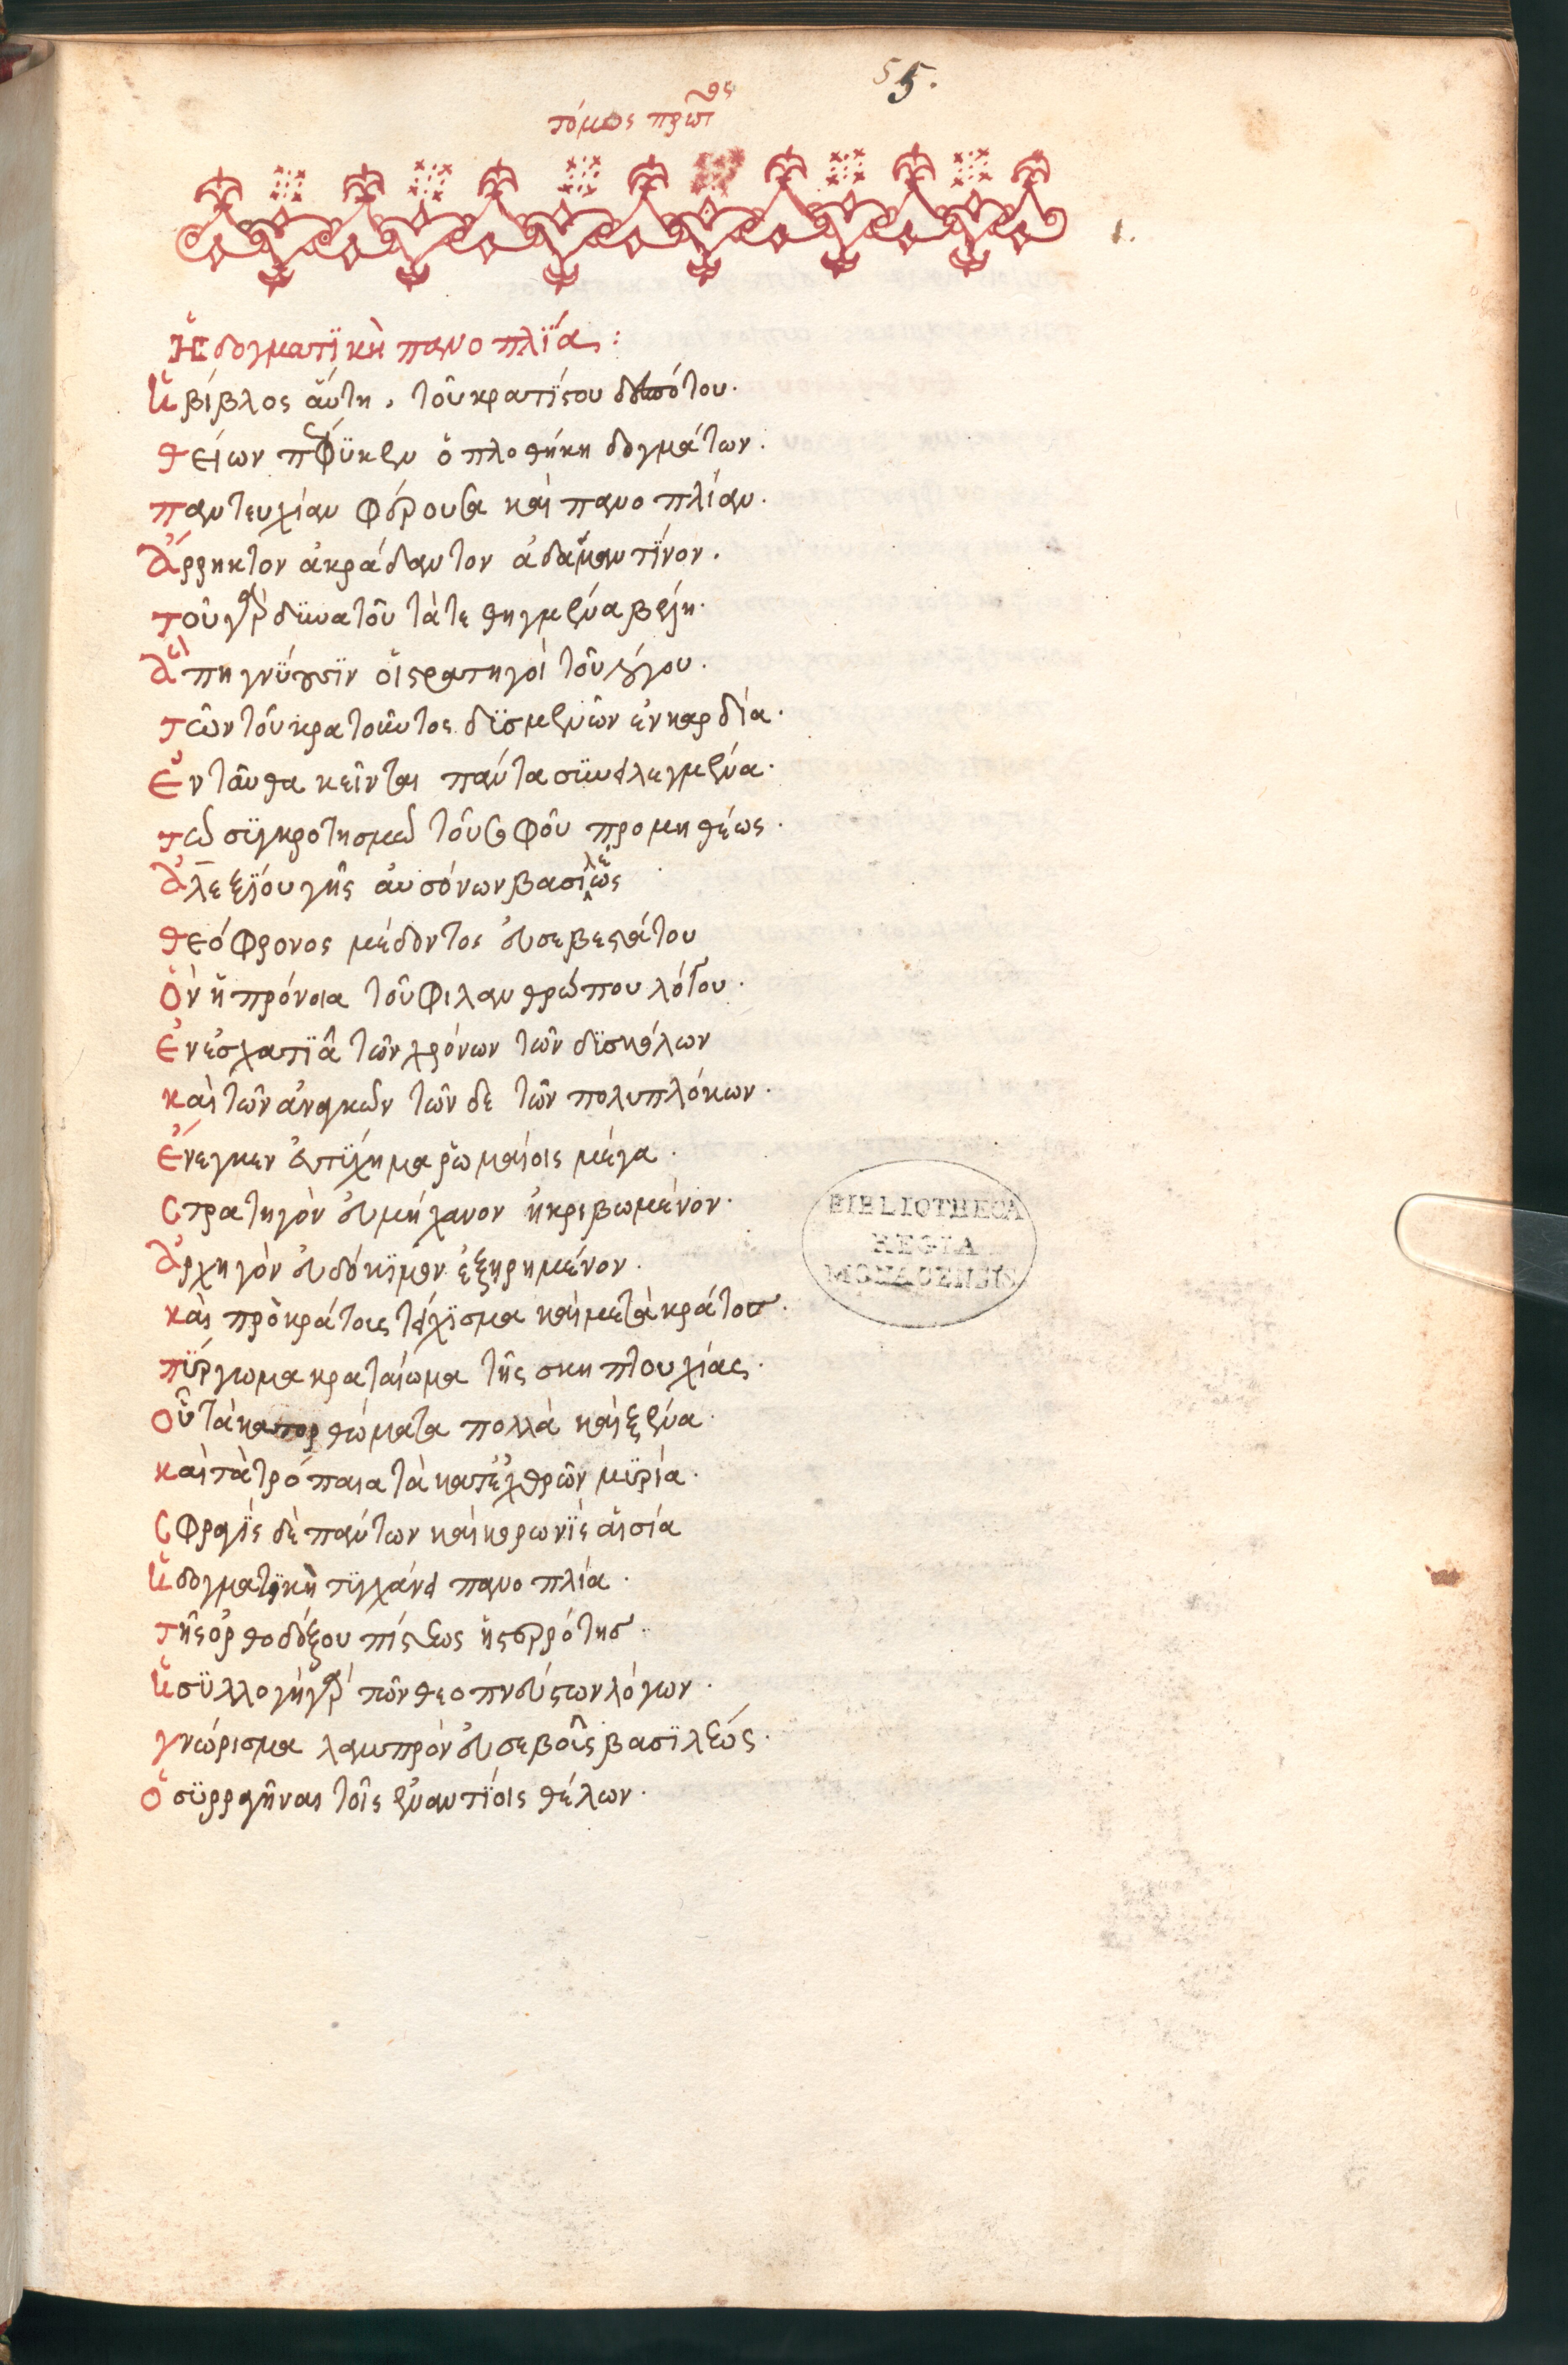 55.
τόμος πρῶτος
1.
Ἡ δογματϊκὴ πανοπλΐα :
Ἡ βίβλος αὕτη, τοῦ κρατΐστου δεσπότου.
θείων πέφϋκεν ὁπλοθήκη δογμάτων.
παντευχίαν φέρουσα καὶ πανοπλίαν.
Ἄρρηκτον ἀκράδαντον ἀδαμαντΐνον.
τοῦ γὰρ δϋνατοῦ τά τε θηγμένα βέλη.
πηγνϋουσϊν οἱ στρατηγοὶ τοῦ λόγου.
τῶν τοῦ κρατοῦντος δϋσμενῶν ἐν καρδία.
Ἐνταῦθα κεῖνται πάντα συνειλεγμένα.
τῶ σϋγκροτησμῶ τοῦ σοφοῦ προμηθέως.
Ἀλεξΐου γῆς αὐσόνων βασιλέως
θεόφρονος μέδοντος εὐσεβεστάτου
Ὃν ἡ πρόνοια τοῦ φιλανθρώπου λόγου.
Ἐν ἐσχατϊᾶ τῶν χρόνων τῶν δϋσκόλων
καὶ τῶν ἀναγκῶν τῶν δε τῶν πολυπλόκων.
Ἐνεγκεν εὐτϋχημα ῥωμαίοις μέγα.
Στρατηγὸν εὐμήχανον ἠκριβωμένον.
Ἀρχηγὸν εὐδόκϊμον ἐξηρημένον.
καὶ πρὸ κράτους τείχϊσμα καὶ μετὰ κράτος.
πϋργωμα κραταίωμα τῆς σκηπτουχίας.
Οὗ τὰ κατορθώματα πολλὰ καὶ ξένα.
καὶ τὰ τρόπαια τὰ κατ' ἐχθρῶν μϋρία.
Σφραγὶς δὲ πάντων καὶ κορωνὶς αἰσία
Ἡ δογματϊκὴ τϋγχάνει πανοπλία.
τῆς ὀρθοδόξου πίστεως ἡ στερρότης.
Ἡ σϋλλογὴ γὰρ τῶν θεοπνεύστων λόγων.
γνώρισμα λαμπρὸν εὐσεβοῦς βασϊλέως.
Ὁ σϋρραγῆναι τοῖς ἐναντΐοις θέλων.
BIBLIOTHECA
REGIA
MONACENSIS